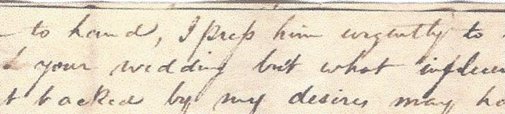 to hand, I press him urgently to
your wedding but what influen
backed by my desires may ha